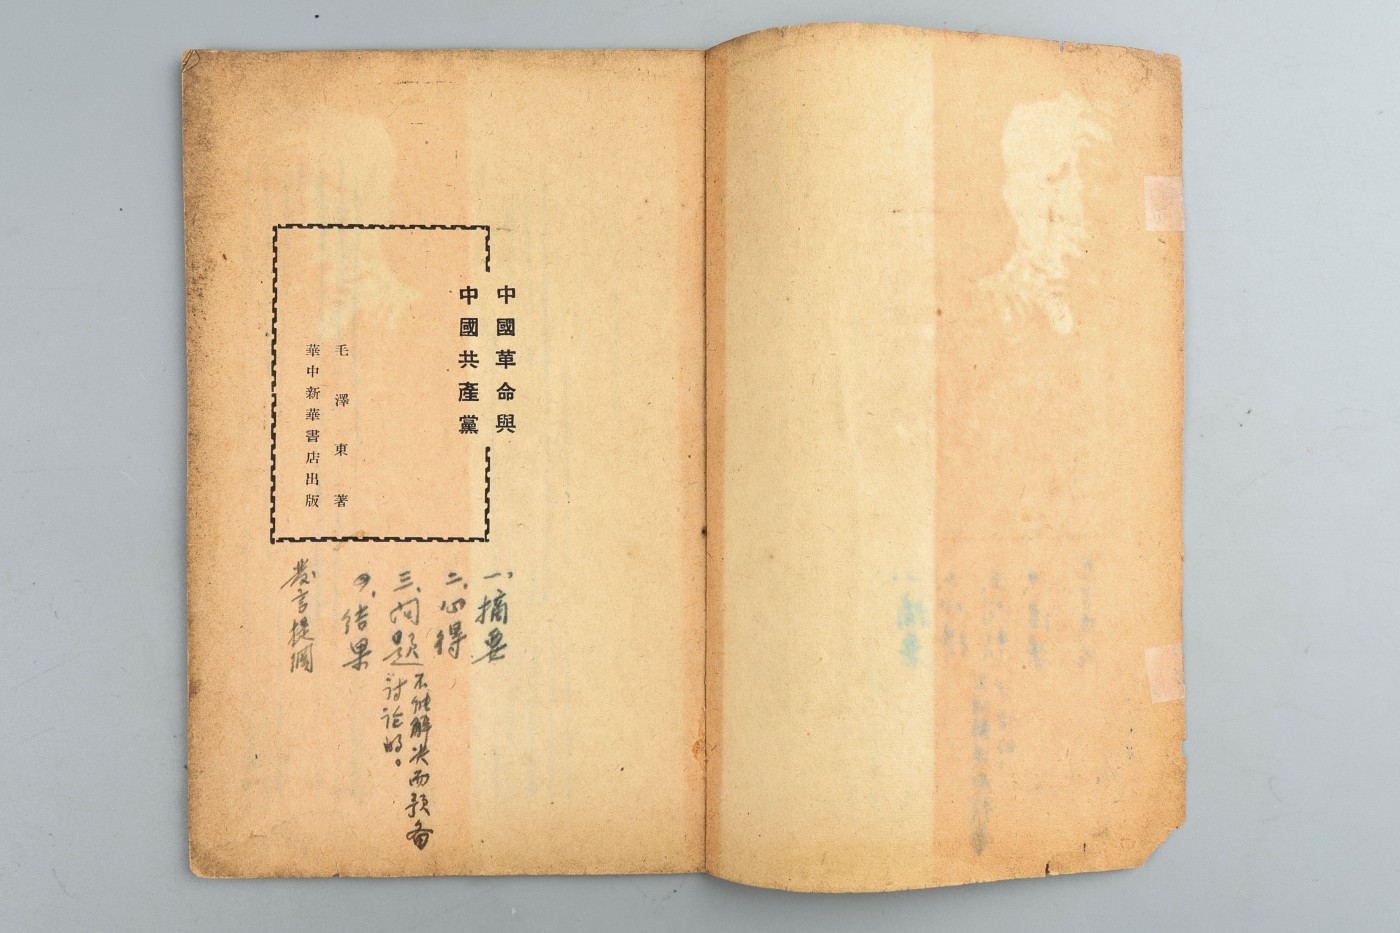 中國革命與
中國共產黨
毛澤東著
華中新華書店出版
一、摘要
二、心得
三、问题 不能解决而预备
讨论的。
四、结果
發言提綱